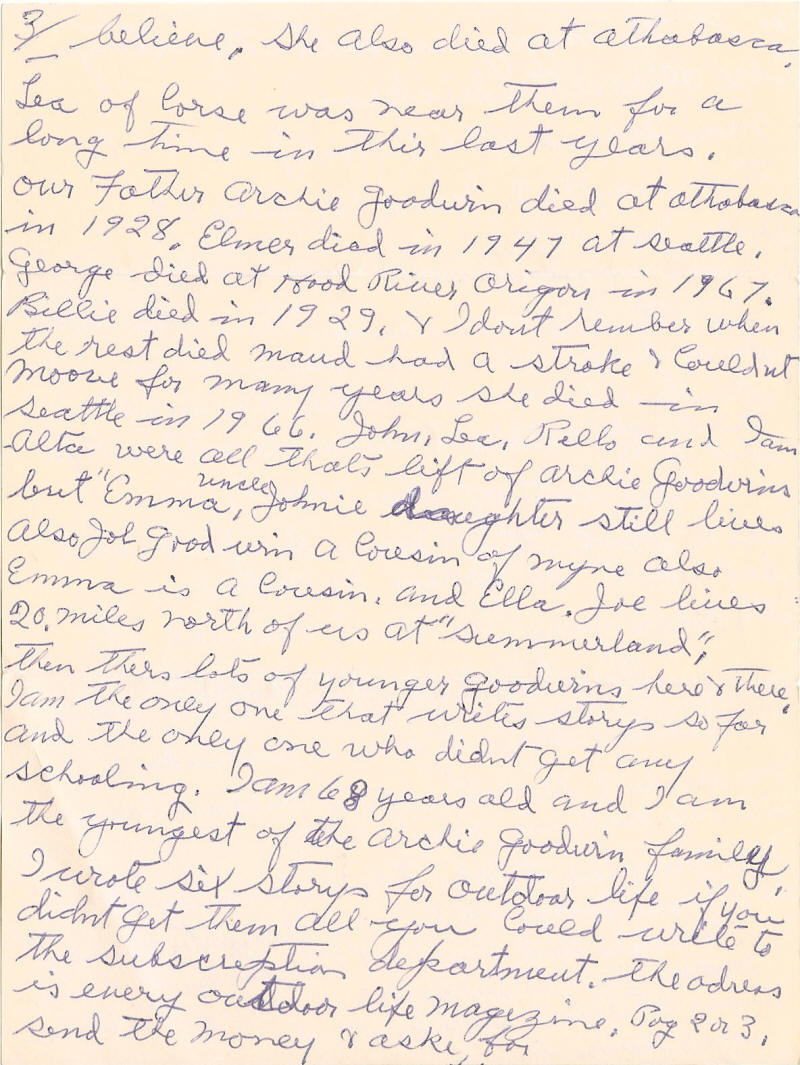 3/ believe, she also died at athabasca,
Lea of Corse was near them for a
long time in this last years.
our Father Archie Goodwin died at athabasca
in 1928, Elmer died in 1947 at seattle.
George died at Hood River Origon in 1967.
Billie died in 1929. & I dont rember when
the rest died maud had a stroke & Couldnt
moove for many years she died in
seattle in 1966. John, Lea, Rello and Iam
Alta were all thats lift of archie Goodwins
but "Emma, uncle Johnie daughter still lives
also Joe Goodwin a Cousin of myne also
Emma is a Cousin. and Ella. Joe lives
20. miles north of us at "summerland",
then thers lots of younger goodwins here & there.
Iam the only one that writes storys so far
and the only one who didnt get any
schooling. I am 68 years old and I am
the youngest of the archie Goodwin family,
I wrote six storys for outdoor life if you
didnt get them all you Could write to
the subscreption department. the adress
is every outdoor life magezine, Pag 2 or 3.
send the money & aske, for